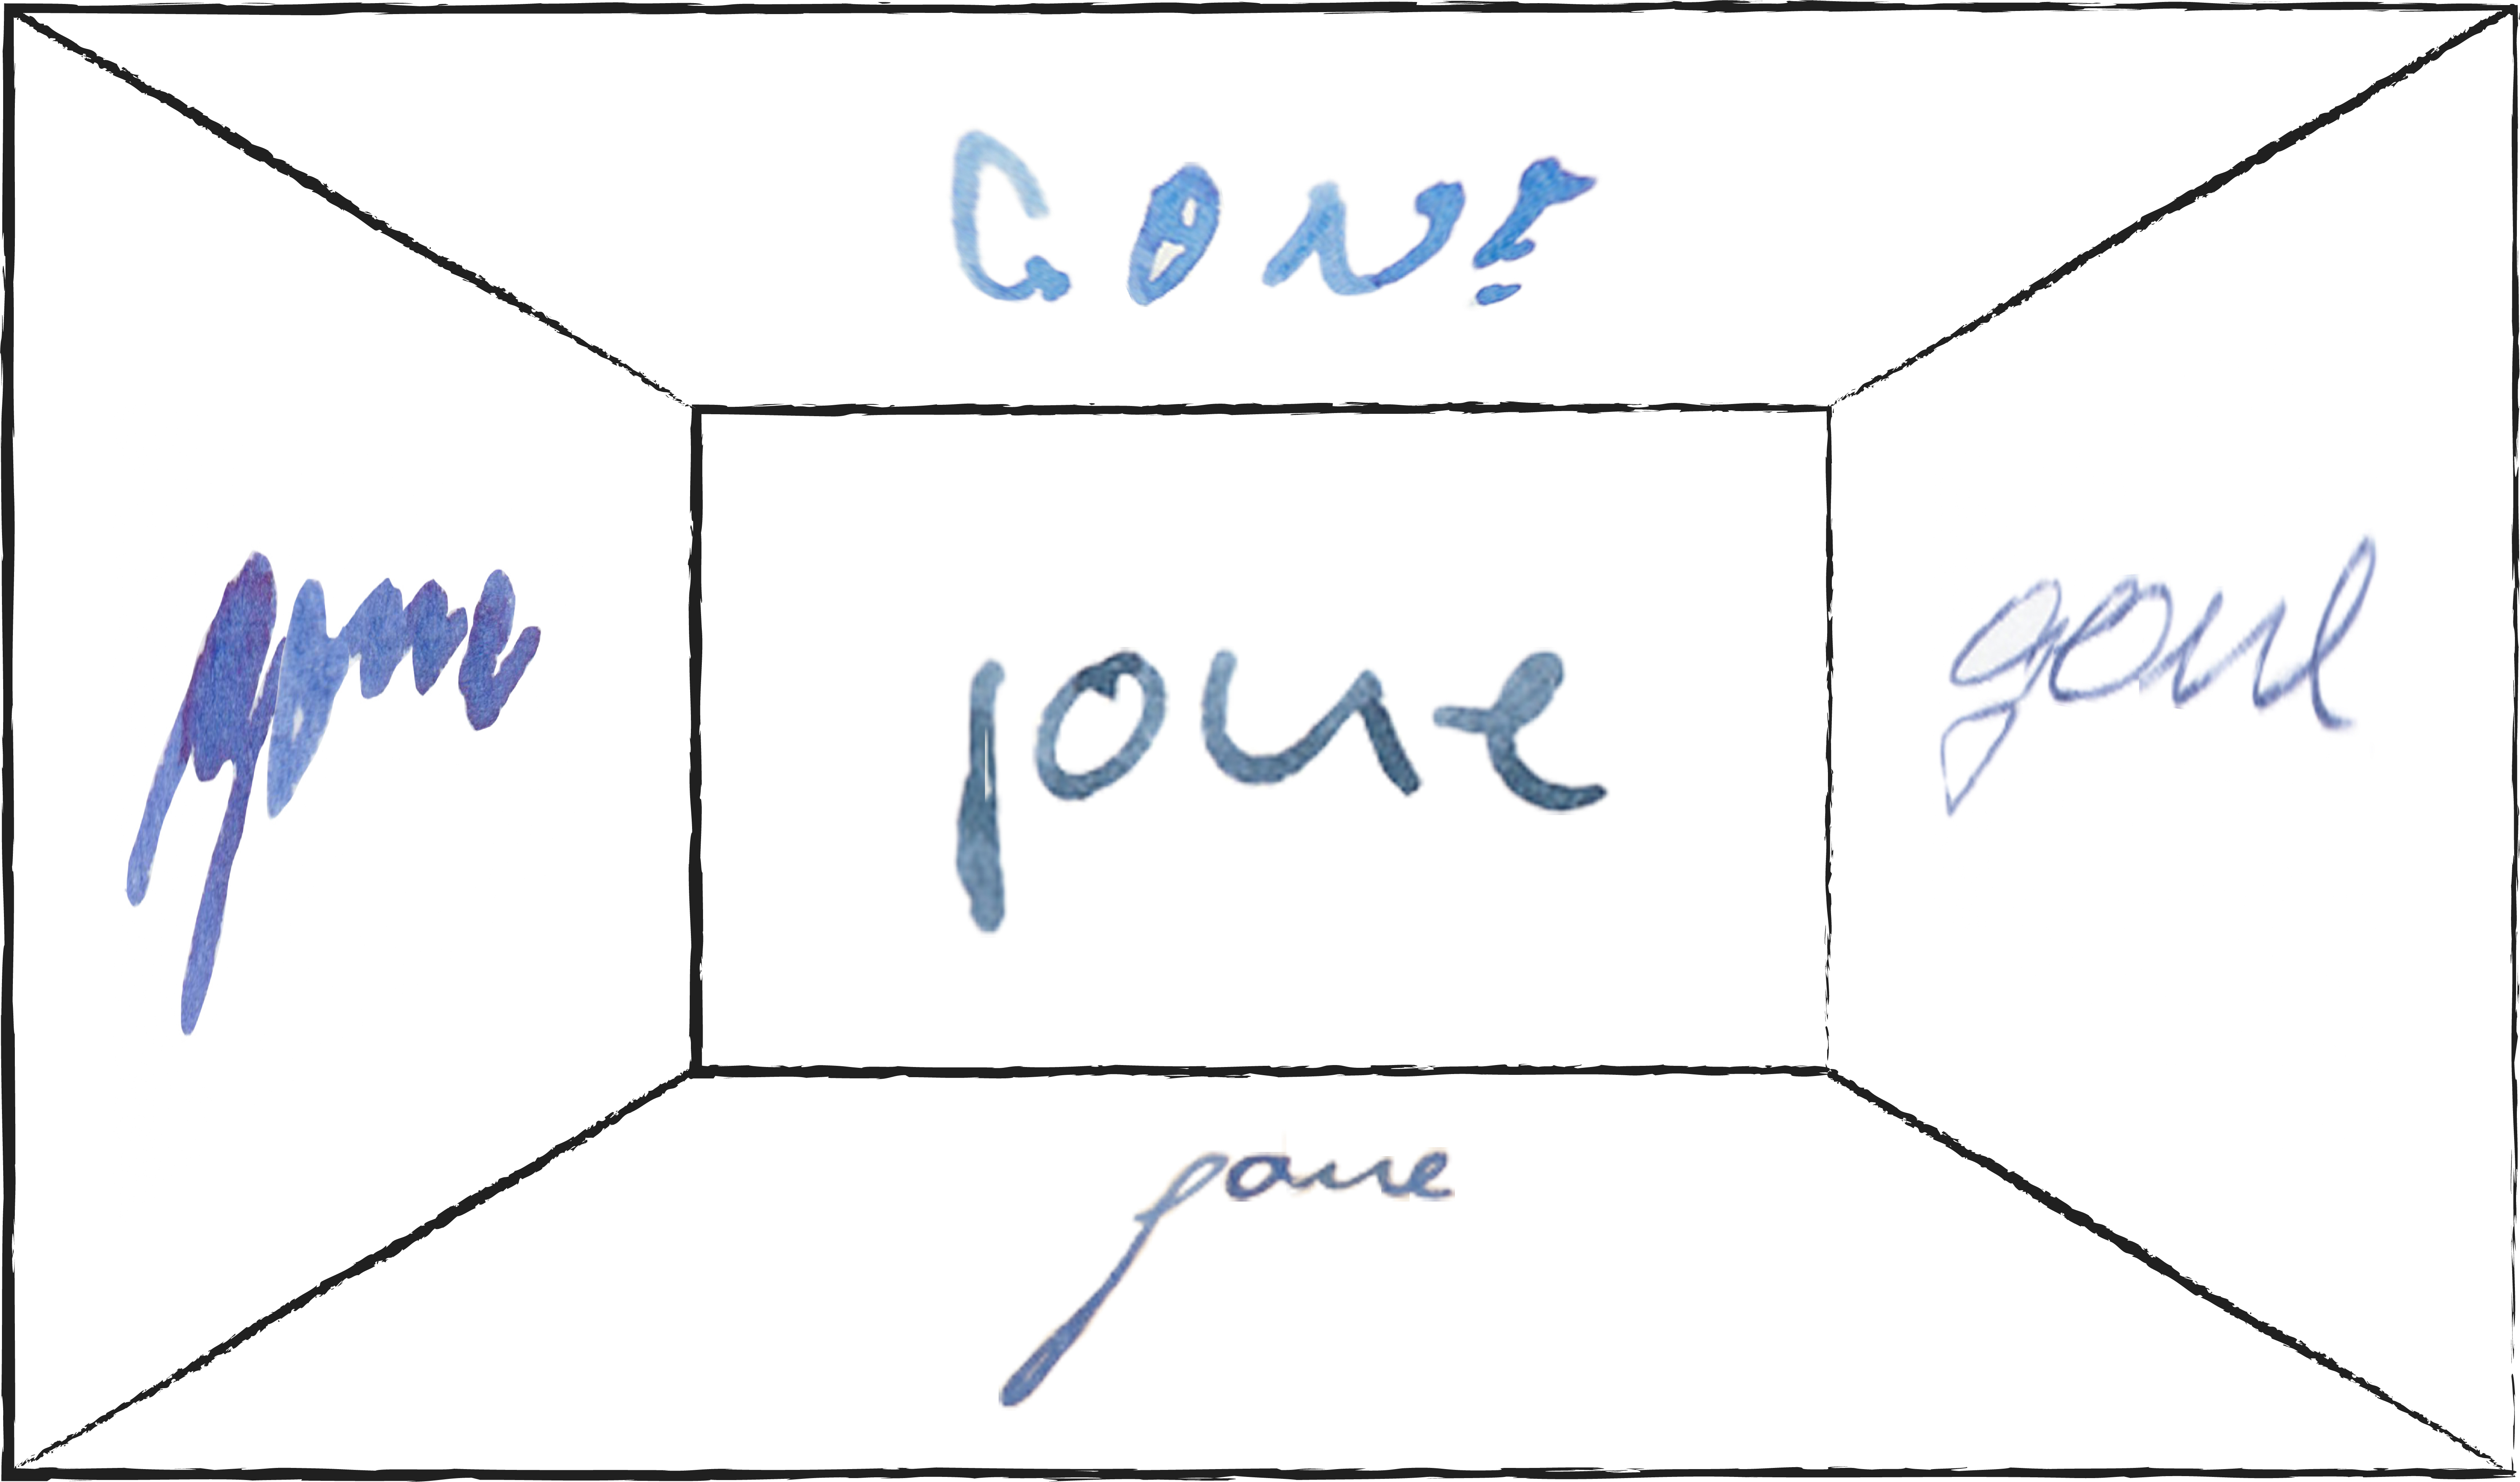 GONE
gone
gone
gone
gone